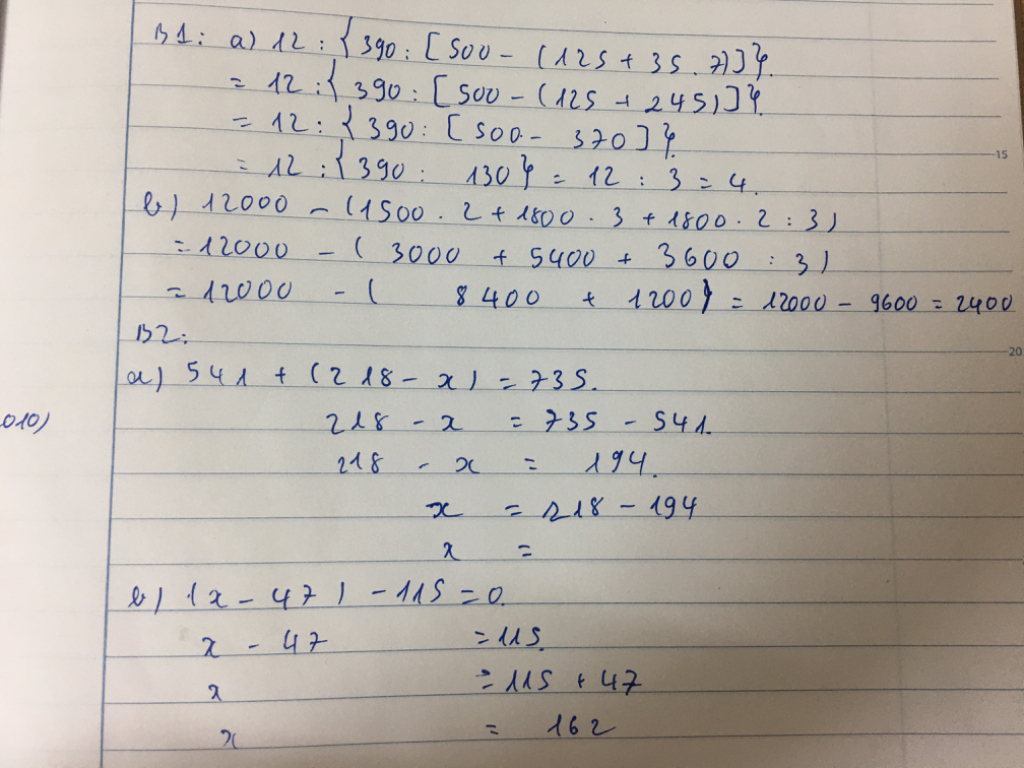 B1: a) 12 : { 390 : [ 500 - ( 125 + 35 . 7)] }.
= 12 : { 390 : [ 500 - ( 125 + 245)] }.
= 12 : { 390 : [ 500 - 370 ] }.
= 12 : { 390 : 130 } = 12 : 3 = 4.
b) 12000 - (1500 . 2 + 1800 . 3 + 1800 . 2 : 3)
= 12000 - ( 3000 + 5400 + 3600 : 3)
= 12000 - ( 8400 + 1200) = 12000 - 9600 = 2400
B2:
a) 541 + (218 - x) = 735.
218 - x = 735 - 541.
218 - x = 194.
x = 218 - 194
x =
b) (x - 47) - 115 = 0.
x - 47 = 115.
x = 115 + 47
x = 162
010)
15
20